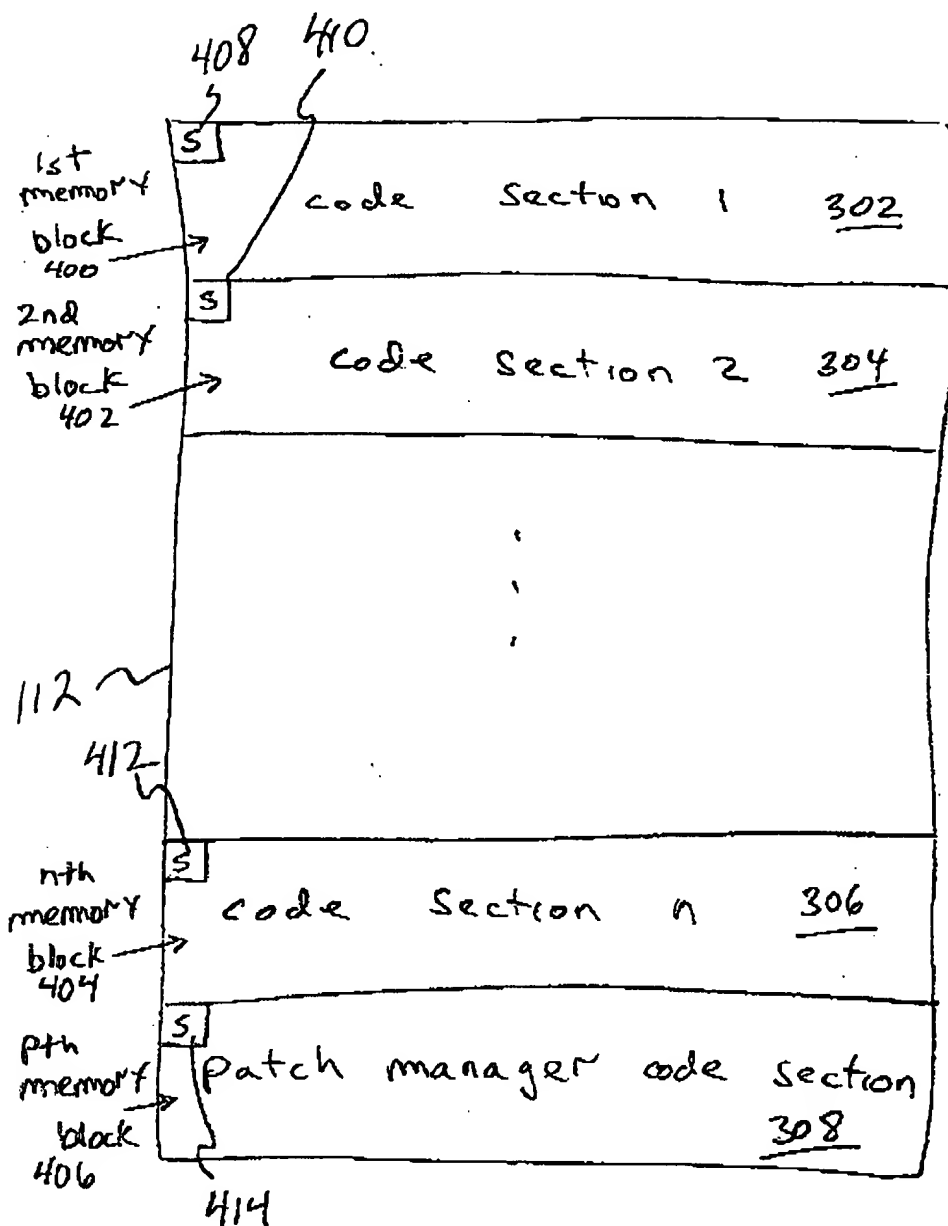 408 410
S
1st
memory
block
400
code section 1 302
S
2nd
memory
block
402
code section 2 304
112
412
S
nth
memory
block
404
code section n 306
S
pth
memory
block
406
patch manager code section
308
414